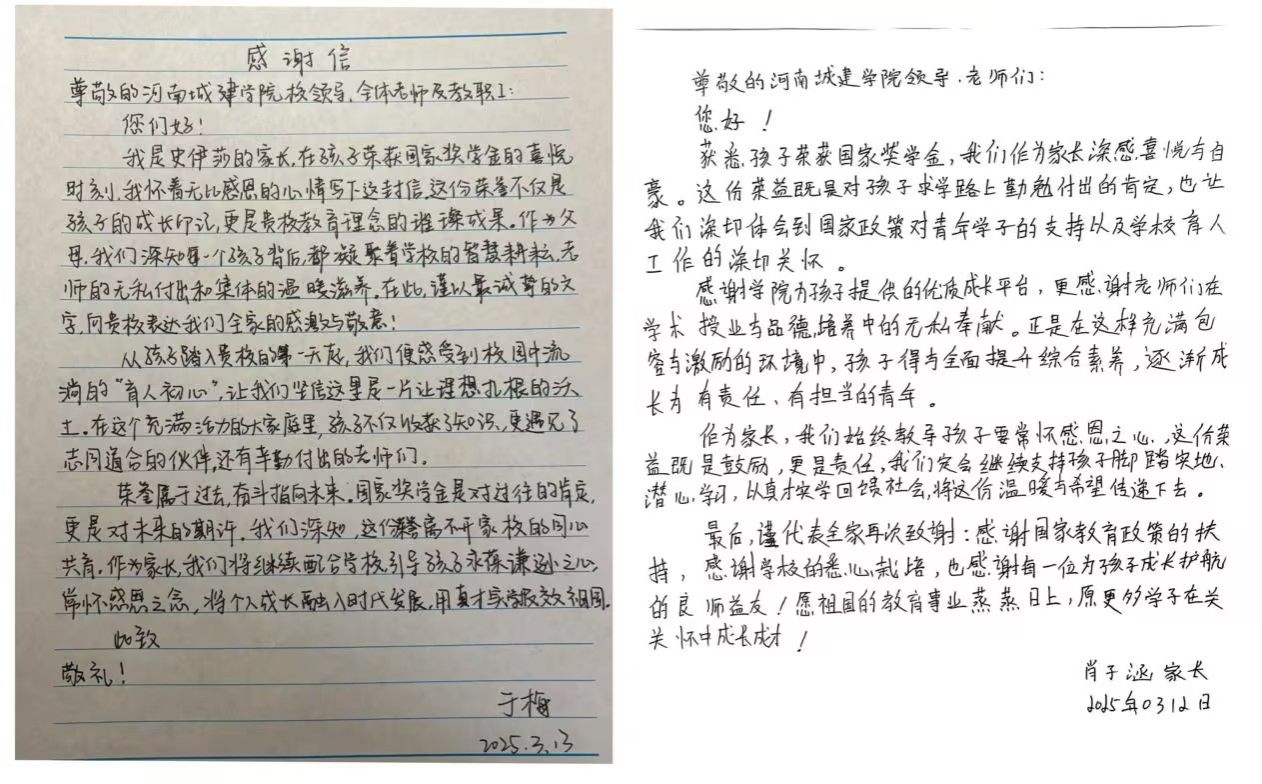 感谢信
尊敬的河南城建学院校领导、全体老师及教职工:
您们好!
我是史伊莎的家长,在孩子荣获国家奖学金的喜悦
时刻,我怀着无比感恩的心情写下这封信。这份荣誉不仅是
孩子的成长印记,更是贵校教育理念的璀璨成果。作为父
母,我们深知每一个孩子背后,都凝聚着学校的智慧耕耘,老
师的无私付出和集体的温暖滋养。在此,谨以最诚挚的文
字,向贵校表达我们全家的感激与敬意!
从孩子踏入贵校的第一天起,我们便感受到校园中流
淌的“育人初心”,让我们坚信这里是一片让理想扎根的沃
土。在这个充满活力的大家庭里,孩子不仅收获了知识,更遇见了
志同道合的伙伴,还有辛勤付出的老师们。
荣誉属于过去,奋斗指向未来。国家奖学金是对过往的肯定,
更是对未来的期许。我们深知,这份荣誉离不开家校的同心
共育。作为家长,我们将继续配合学校,引导孩子永葆谦逊之心,
常怀感恩之念,将个人成长融入时代发展,用真才实学报效祖国。
此致
敬礼!
于梅
2025.3.13
尊敬的河南城建学院领导、老师们:
您好!
获悉孩子荣获国家奖学金,我们作为家长深感喜悦与自
豪。这份荣益既是对孩子求学路上勤勉付出的肯定,也让
我们深切体会到国家政策对青年学子的支持以及学校育人
工作的深切关怀。
感谢学院为孩子提供的优质成长平台,更感谢老师们在
学术授业与品德培养中的无私奉献。正是在这样充满包
容与激励的环境中,孩子得与全面提升综合素养,逐渐成
长为有责任、有担当的青年。
作为家长,我们始终教导孩子要常怀感恩之心,这份荣
益既是鼓励,更是责任,我们定会继续支持孩子脚踏实地、
潜心学习,以真才实学回馈社会,将这份温暖与希望传递下去。
最后,谨代表全家再次致谢:感谢国家教育政策的扶
持,感谢学校的悉心栽培,也感谢每一位为孩子成长护航
的良师益友!愿祖国的教育事业蒸蒸日上,原更多学子在关
关怀中成长成才!
肖子涵家长
2025年03月12日